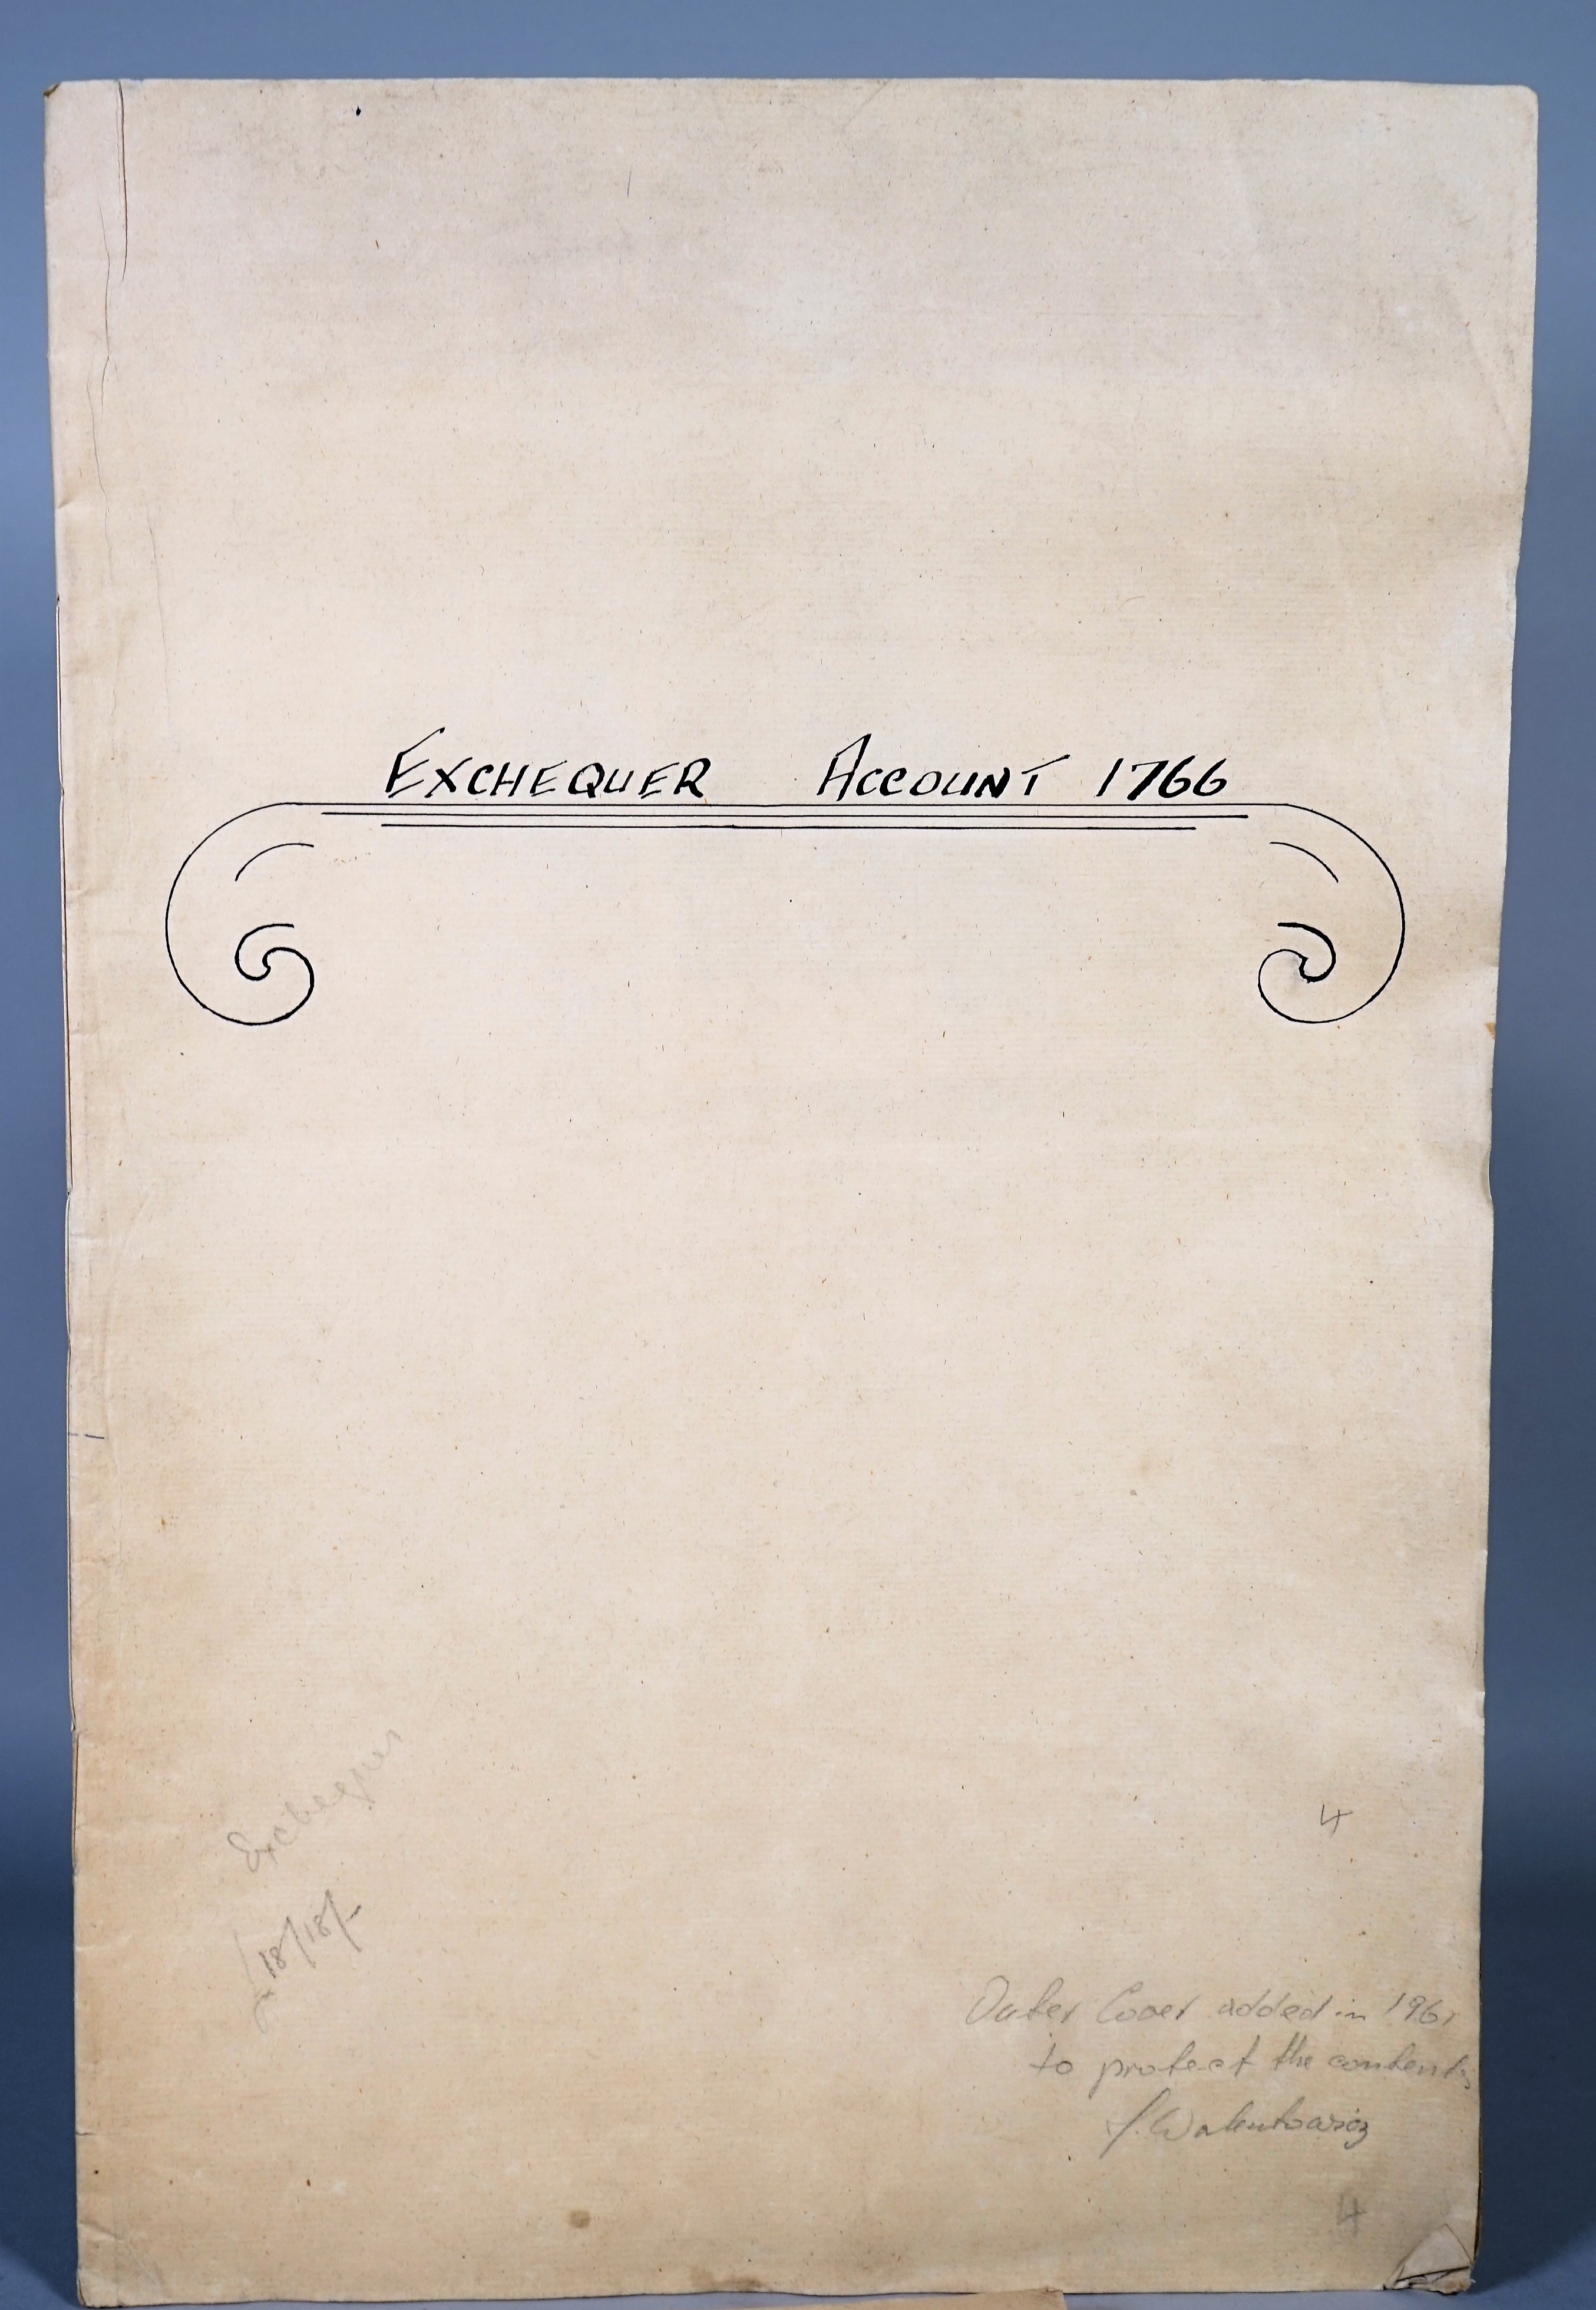 EXCHEQUER ACCOUNT 1766
Exchequer
£18/18/-
4
Outer Cover added in 1961
to protect the contents
4